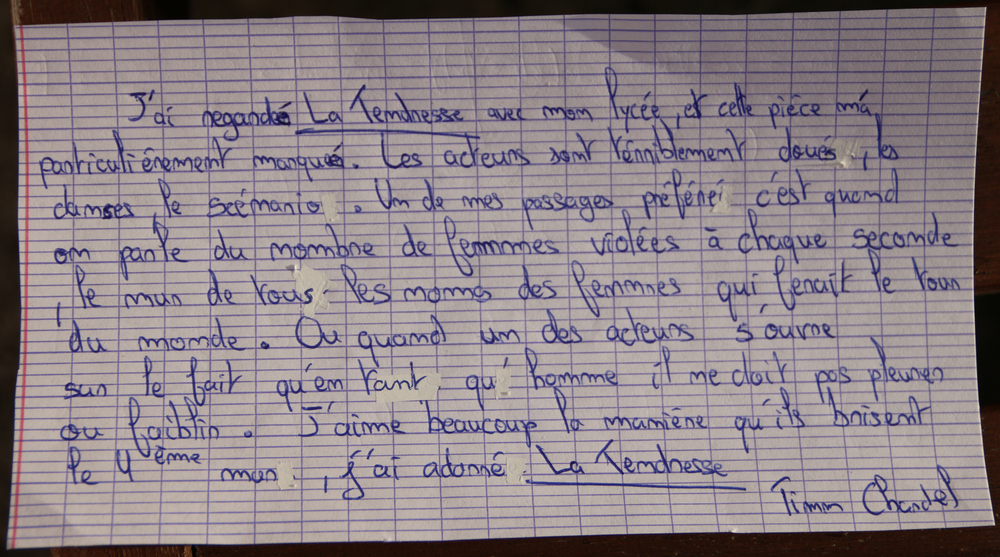 J'ai regardé La Tendresse avec mon lycée, et cette pièce m'a
particulièrement marqué. Les acteurs sont térriblement doués, les
danses, le scénario. Un de mes passages préféré c'est quand
on parle du nombre de femmes violées à chaque seconde
, le mur de tous les noms des femmes qui ferait le tour
du monde. Ou quand un des acteurs s'ouvre
sur le fait qu'en tant qu' homme il ne doit pas pleurer
ou faiblir. J'aime beaucoup la manière qu'ils brisent
le 4ème mur, j'ai adoré La Tendresse
Timm Chardel